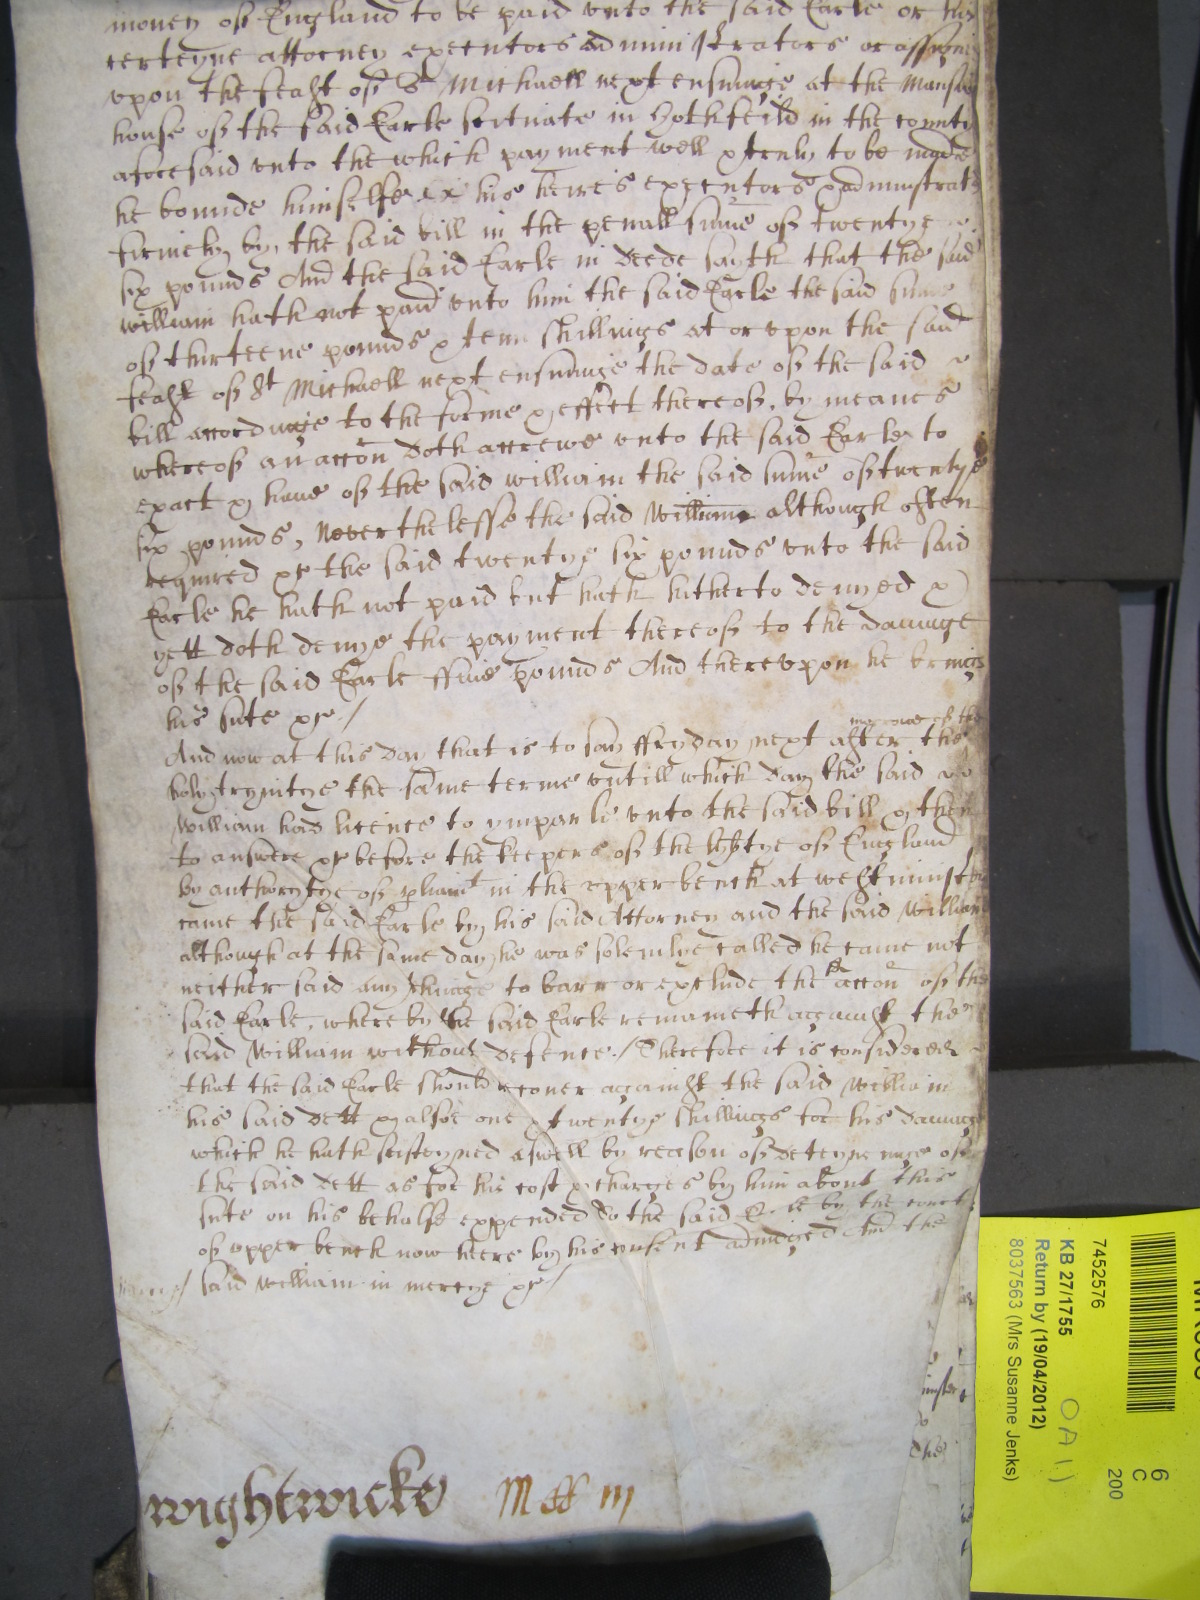 money of England to be paid unto the said Earle or his
certeyne attorney executors administrators or assignes
upon the feast of St Michaell next ensuinge at the Mansion
house of the said Earle scituate in Hothfeild in the county
aforesaid unto the which payment well & truly to be made
he bounde himselfe & his heires executors & administrat
firmely by the said bill in the penall sume of twentye
six pounds And the said Earle in deede sayth that the said
william hath not paid unto him the said Earle the said sume
of thirteene pounds & tenn shillings at or upon the said
feast of St Michaell next ensuinge the date of the said
bill accordinge to the forme & effect thereof, by meanes
whereof an accon doth accrewe unto the said Earle to
exact & have of the said william the said sume of twentye
six pounds, Neverthelesse the said William although often
required &c the said twentye six pounds unto the said
Earle he hath not paid but hath hitherto denyed &
yett doth denye the payment thereof to the damage
of the said Earle ffive pounds And thereupon he brings
his sute &c /
morrow of the
And now at this day that is to say ffryday next after the
holy trynitye the same terme untill which day the said
William had licence to imparle unto the said bill & then
to answere &c before the keepers of the libtye of England
by authorytye of parliamt in the upper bench at westminster
came the said Earle by his said Attorney and the said William
although at the same day he was solemlye called he came not
neither said any thinge to barr or exclude the accon of the
said Earle, whereby the said Earle remaineth against the
said William without defence / Therefore it is considered
that the said Earle should recover against the said William
his said dett & alsoe one & twentye shillings for his damage
which he hath susteyned aswell by reason of deteyneinge of
the said dett as for his cost & charges by him about this
sute on his behalfe expended to the said by the court
of upper bench now heere by his consent adiudged And the
said William in mercye &c /
wightwicke M ff iij
7452576
KB 27/1755
Return by (19/04/2012)
8037563 (Mrs Susanne Jenks)
6
C
200